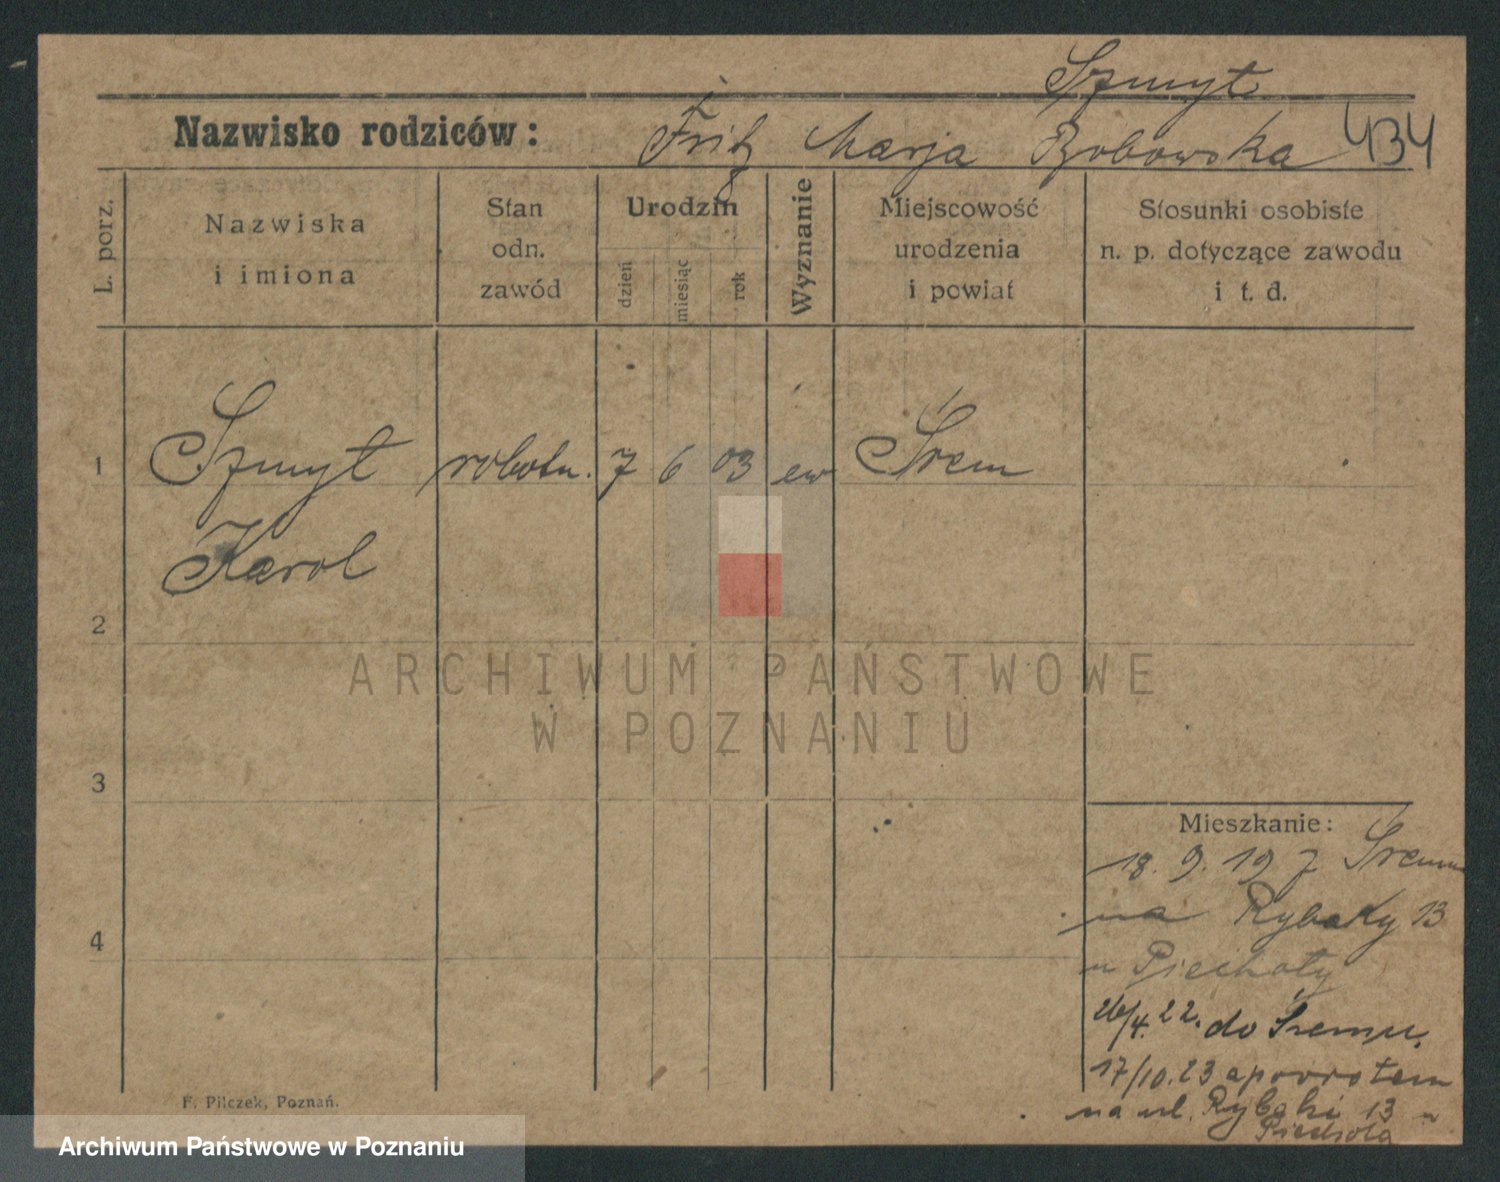 Szmyt
Nazwisko rodziców: Fritz Marja Bobowska 434
L. porz.
Nazwiska i imiona
Stan odn. zawód
Urodzin
dzień
miesiąc
rok
Wyznanie
Miejscowość urodzenia i powiat
Stosunki osobiste n. p. dotyczące zawodu i t. d.
1 Szmyt robotn. 7 6 03 ew Śrem
Karol
2
3
4
ARCHIWUM PAŃSTWOWE
W POZNANIU
Mieszkanie:
18. 9. 19 z Śremu
na Rybaky 13
u Piechoty
26/4. 22. do Śremu.
17/10. 23 z powrotem
na ul. Rybaki 13 u
Piechota
F. Pilczek, Poznań.
Archiwum Państwowe w Poznaniu